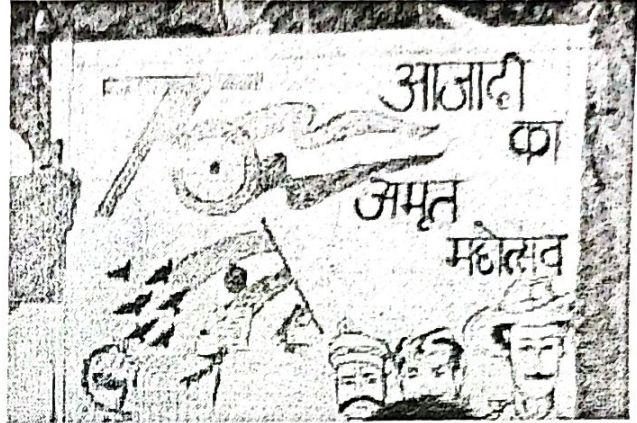 75
आजादी
का
अमृत
महोत्सव